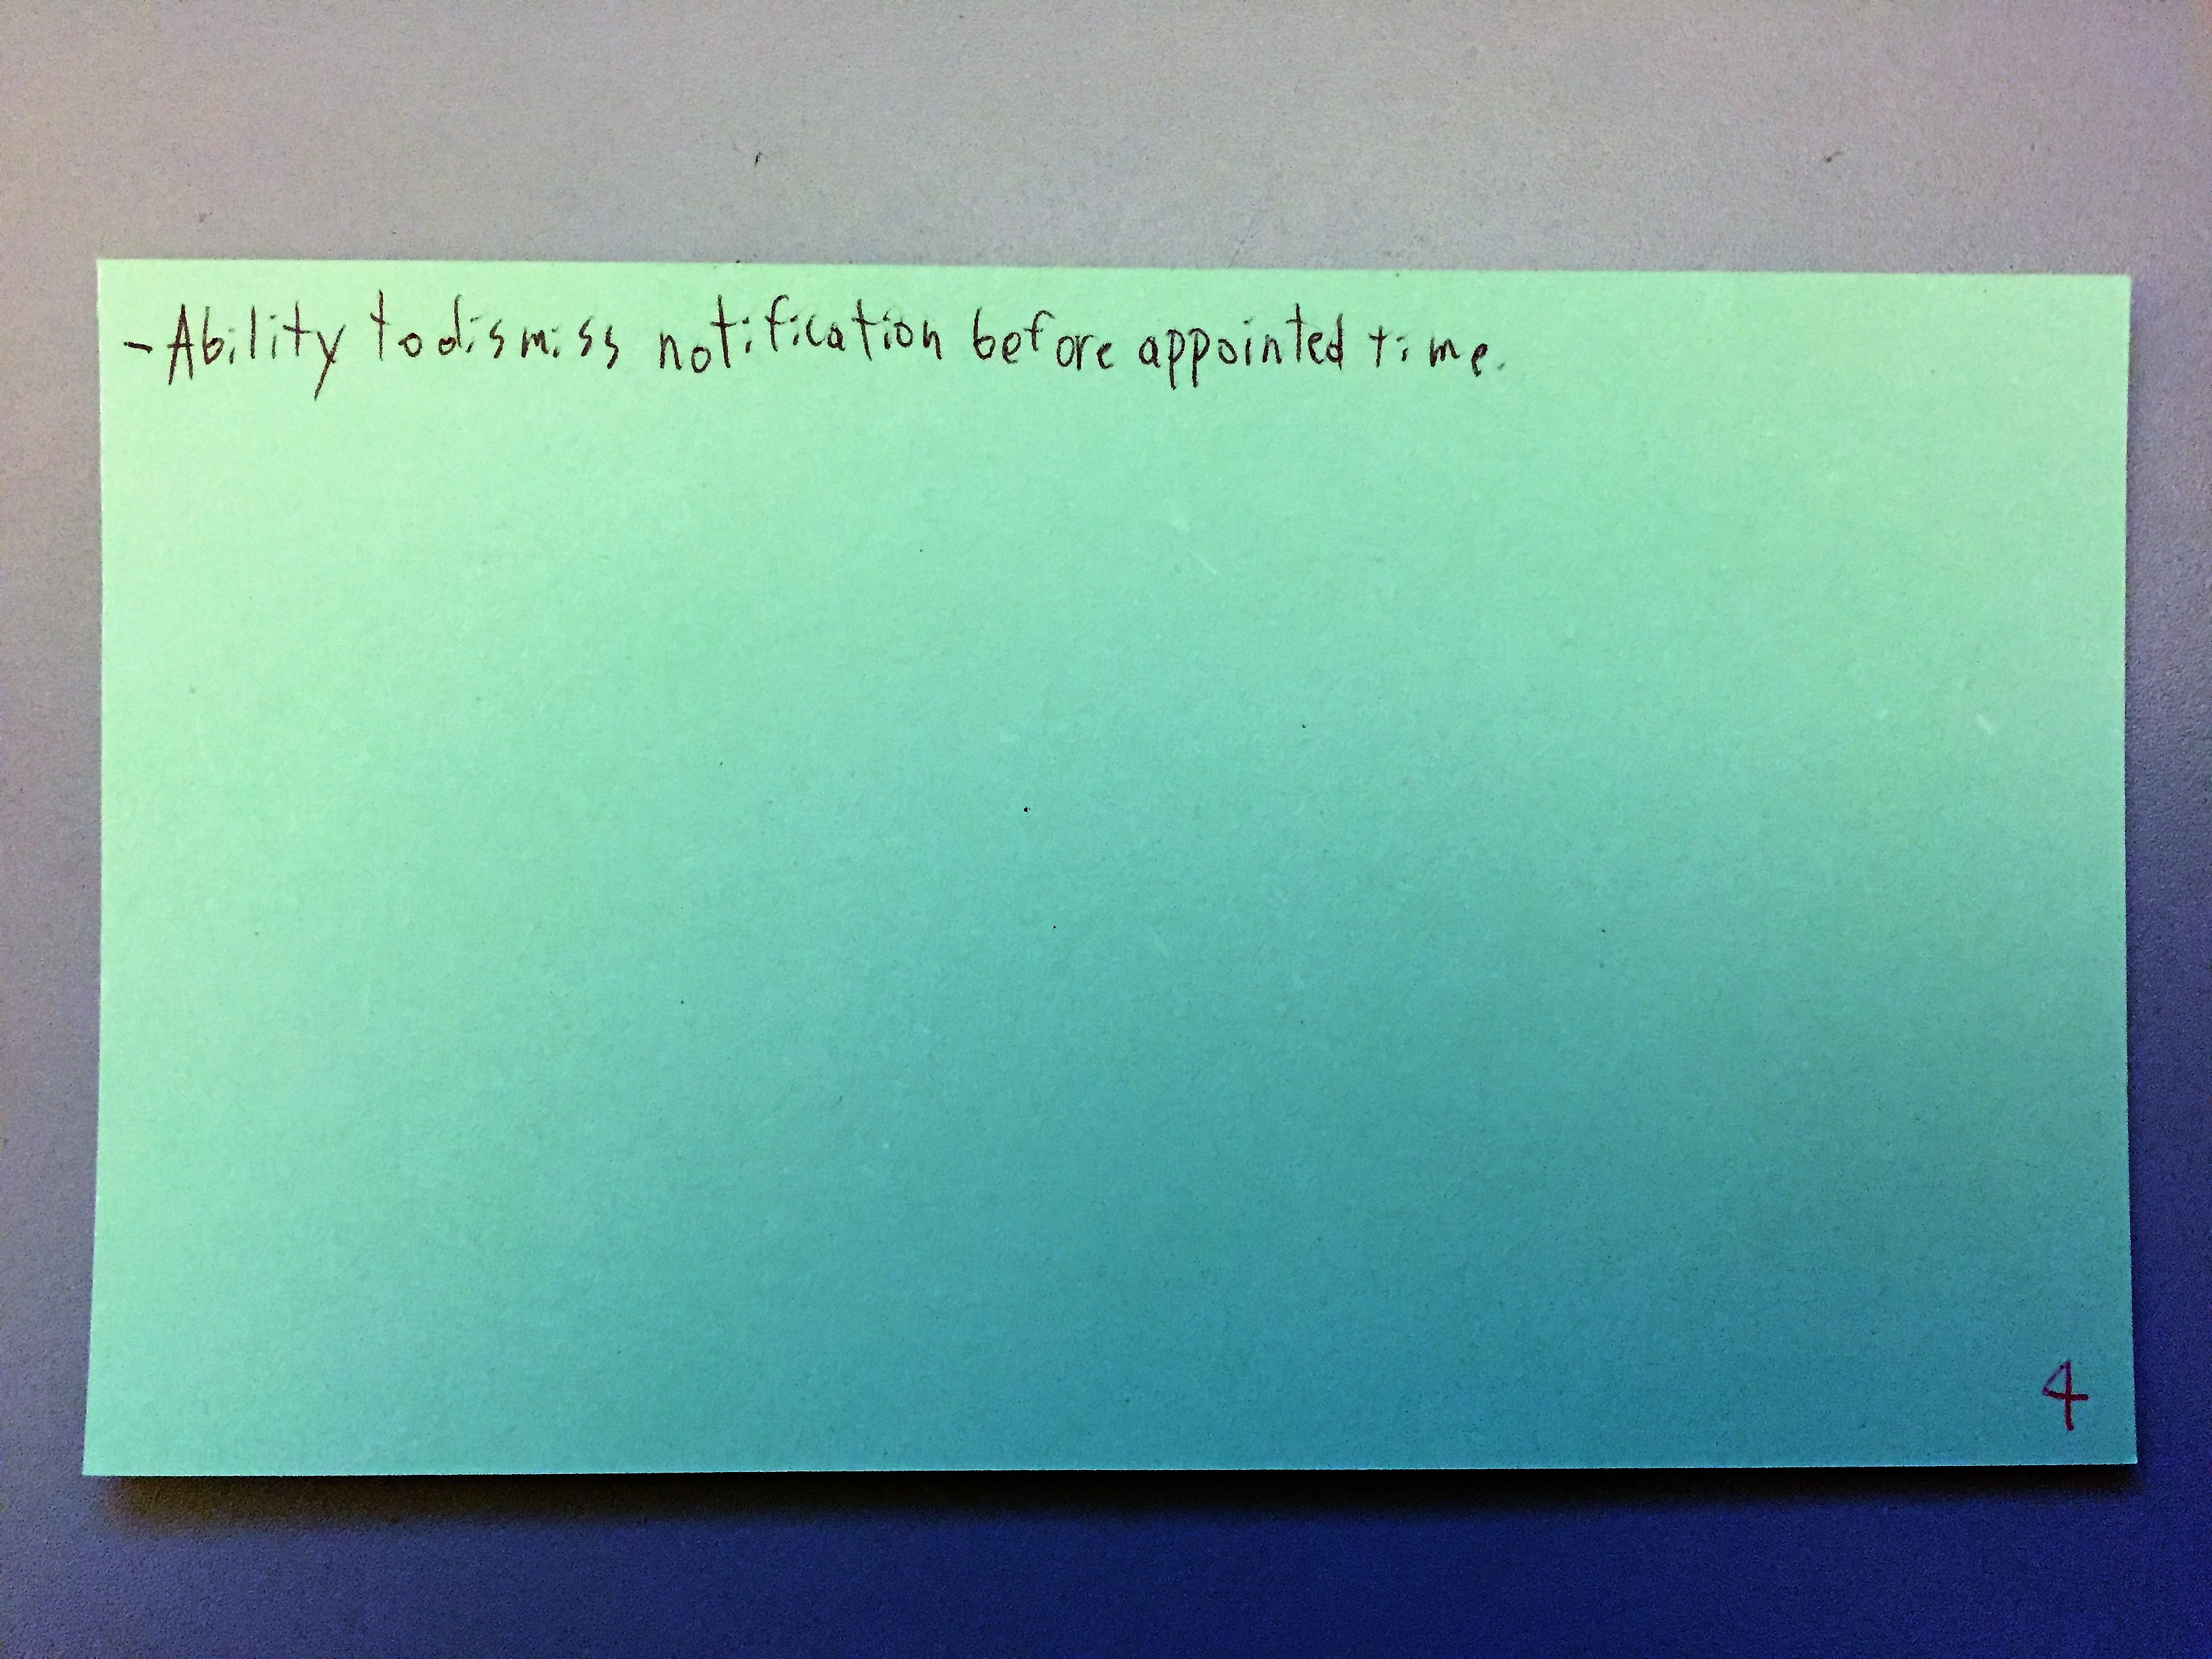 - Ability to dismiss notification before appointed time.
4